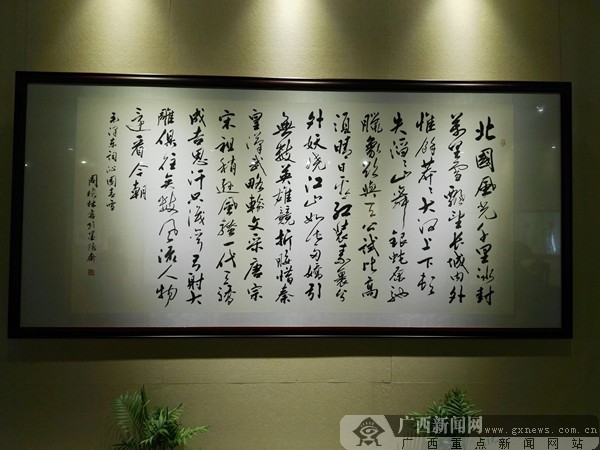 北國風光千里冰封
萬里雪飄望長城內外
惟餘莽々大河上下頓
失滔々山舞銀蛇原馳
臘象欲與天公試比高
須晴日看紅裝素裹分
外妖嬈江山如此多嬌引
無數英雄競折腰惜秦
皇漢武略輸文采唐宗
宋祖稍遜風騷一代天驕
成吉思汗只識彎弓射大
雕俱往矣數風流人物
還看今朝
毛澤東詞沁園春雪
周 林書於墨緣齋
广西新闻网
www.gxnews.com.cn
广西重点新闻网站